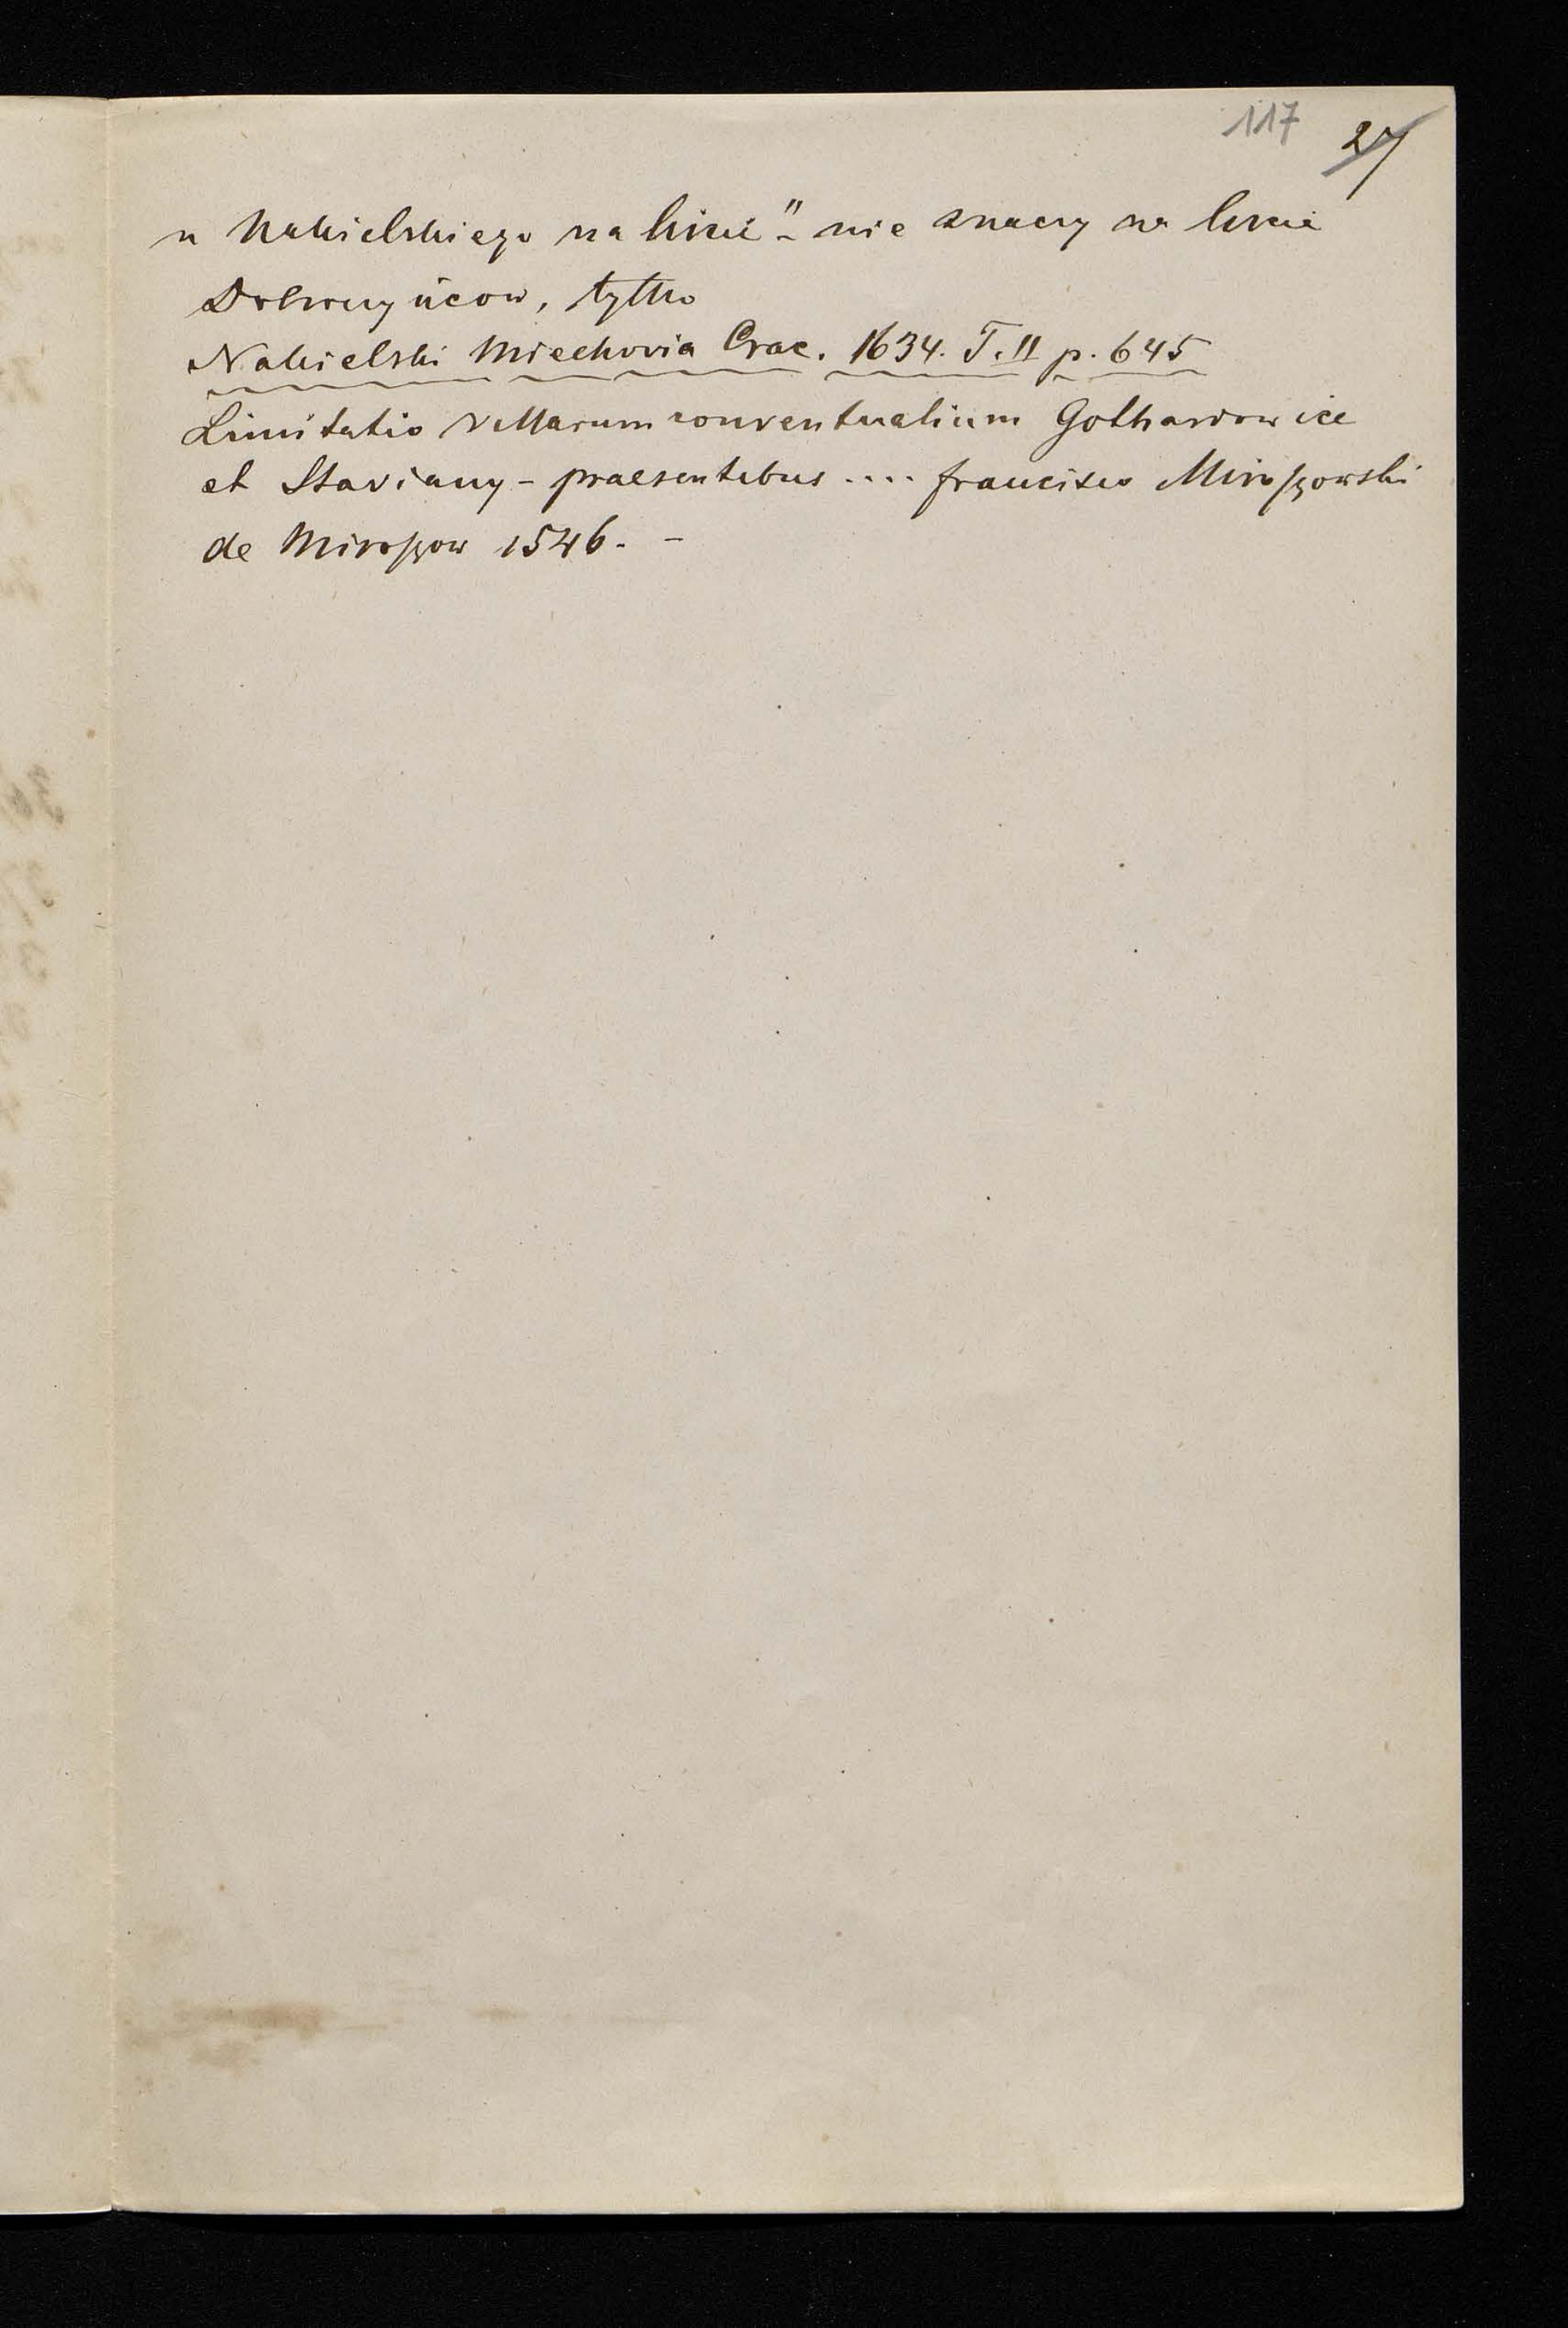 117 27
u Nakielskiego na liscie" - nie znaczy na liscie
tylko
Nakielski Miechovia Crac. 1634. T. II p. 645
Limitatio villarum conventualium Gothardowice
et Staviany - praesentibus .... francisco Miroszowski
de Miroszow 1546. -